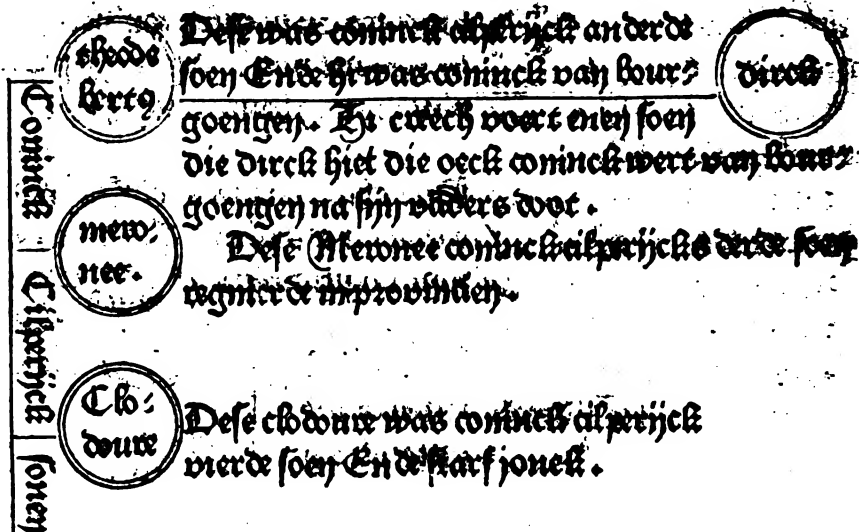 theode
bertꝯ
Dese was coninck cilperijck ander de
soen Ende hi was coninck van bour⸗
dirck
goengen. Hi creech voert enen soen
die dirck hiet die oeck coninck wert van bour⸗
goengen na sijn vaders doot.
mero⸗
nee.
Dese Meronee coninck cilperijcks derde soen
regnierde in provincien.
Clo⸗
doure
Dese clodoure was coninck cilperijck
vierde soen Ende starf jonck.
Coninck | Cilperijck | sonen